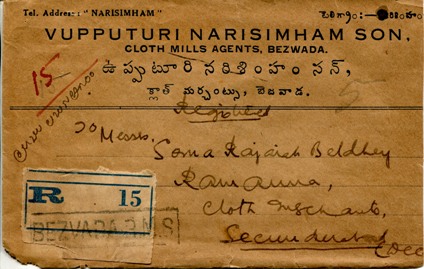 Tel. Address: " NARISIMHAM" టెలిగ్రాం:—
VUPPUTURI NARISIMHAM SON,
CLOTH MILLS AGENTS, BEZWADA.
ఉప్పుటూరి నరిశింహం సన్,
క్లాత్ మర్చంట్సు, బెజవాడ.
15
Registered
To Messrs.
Soma Rajaiah
Ramanna,
Cloth Merchants,
Secunderabad
(Dec
R 15
BEZVADA R.M.S